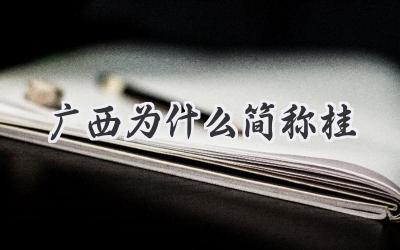 广西为什么简称桂